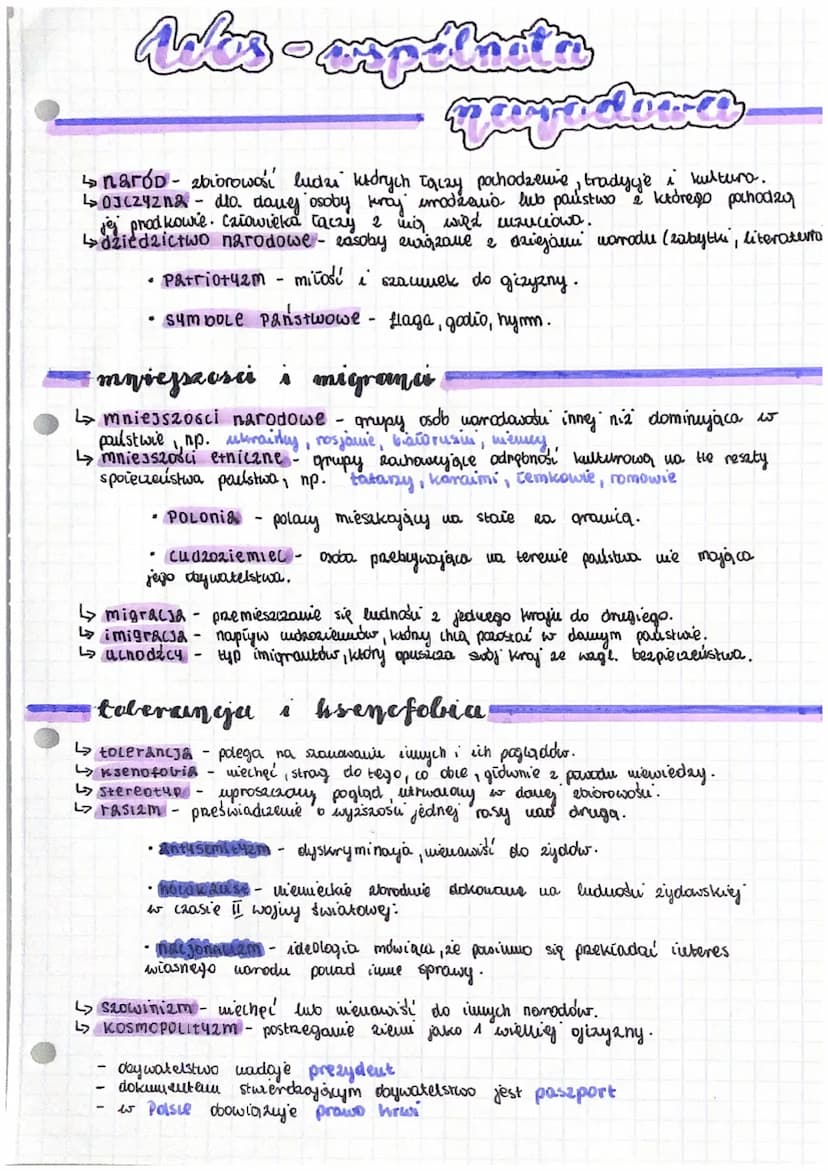 Wos - wspólnota
narodowa
↳ naród - zbiorowość ludzi których łączy pochodzenie, tradycje i kultura.
↳ ojczyzna - dla danej osoby kraj urodzenia lub państwo z którego pochodzą
jej przodkowie. Człowieka łączy z nią więź uczuciowa.
↳ dziedzictwo narodowe - zasoby związane z dziejami narodu (zabytki, literatura
• patriotyzm - miłość i szacunek do ojczyzny.
• symbole państwowe - flaga, godło, hymn.
mniejszości i migranci
↳ mniejszości narodowe - grupy osób narodowości innej niż dominująca w
państwie, np. ukraińcy, rosjanie, białorusini, niemcy
↳ mniejszości etniczne - grupy zachowujące odrębność kulturową na tle reszty
społeczeństwa państwa, np. tatarzy, karaimi, łemkowie, romowie
• Polonia - polacy mieszkający na stałe za granicą.
• cudzoziemiec - osoba przebywająca na terenie państwa nie mająca
jego obywatelstwa.
↳ migracja - przemieszczanie się ludności z jednego kraju do drugiego.
↳ imigracja - napływ cudzoziemców, którzy chcą pozostać w danym państwie.
↳ uchodźcy - typ imigrantów, który opuszcza swój kraj ze wzgl. bezpieczeństwa.
tolerancja i ksenofobia
↳ tolerancja - polega na szanowaniu innych i ich poglądów.
↳ ksenofobia - niechęć, strach do tego, co obce, głównie z powodu niewiedzy.
↳ stereotyp - uproszczony pogląd utrwalony w danej zbiorowości.
↳ rasizm - przeświadczenie o wyższości jednej rasy nad drugą.
• antysemityzm - dyskryminacja, nienawiść do żydów.
• holokaust - niemieckie zbrodnie dokonane na ludności żydowskiej
w czasie II wojny światowej.
• nacjonalizm - ideologia mówiąca, że powinno się przekładać interes
własnego narodu ponad inne sprawy.
↳ szowinizm - niechęć lub nienawiść do innych narodów.
↳ kosmopolityzm - postrzeganie ziemi jako 1 wielkiej ojczyzny.
- obywatelstwo nadaje prezydent
- dokumentem stwierdzającym obywatelstwo jest paszport
- w Polsce obowiązuje prawo krwi